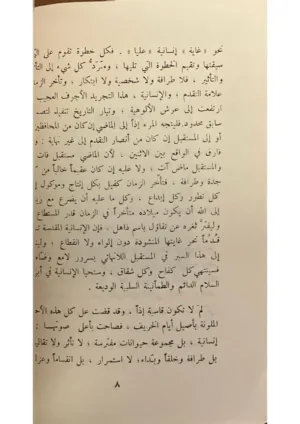 نحو « غاية » إنسانية « عليا » . فكل خطوة تقوم على
سبقتها وتقيم الخطوة التي تليها ، ومردّ كل شيء إلى
والتأثير ، فلا طرافة ولا شخصية ولا ابتكار ، وتأخر الزمان
علامة التقدم ؛ والإنسانية ، هذا التجريد الأجوف العجيب
ارتفعت إلى عرش الألوهية ؛ وتيار التاريخ تنفيذ
سابق محدود. فليتجه المرء إذاً إلى الماضي إن كان من المحافظين
أو إلى المستقبل إن كان من أنصار التقدم إلى غير نهاية :
فارق في الواقع بين الاثنين ، لأن الماضي مستقبل فات
والمستقبل ماض آت ؛ ولا عليه إن كان عقيماً خالياً من
جدة وطرافة ، فتأخر الزمان كفيل بكل إنتاج وموكول
كل تطور وكل إبداع ، وكل ما عليه أن يضرع مع
إلى الله أن يكون ميلاده متأخراً في الزمان قدر المستطاع
وليفترّ ثغره عن تفاؤل باسم ذاهل ، فإن الإنسانية المقدسة
قُدُماً نحو غايتها المنشودة دون إلواء ولا انقطاع ؛
إلى هذا السير في المستقبل اللانهائي بسرور لامع
فسينتهي كل كفاح وكل شقاق ، وستحيا الإنسانية في
السلام الدائم والطمأنينة السلبية الوديعة .
لمَ لا تكون قاسية إذاً ، وقد قضت على كل هذه
الملونة بأصيل أيام الخريف ، فصاحت بأعلى صوتها :
إنسانية ، بل مجموعة حيوانات مفترسة ؛ لا تأثر ولا
بل طرافة وخلقاً وبَدْءاً؛ لا استمرار ، بل انقساماً
٨